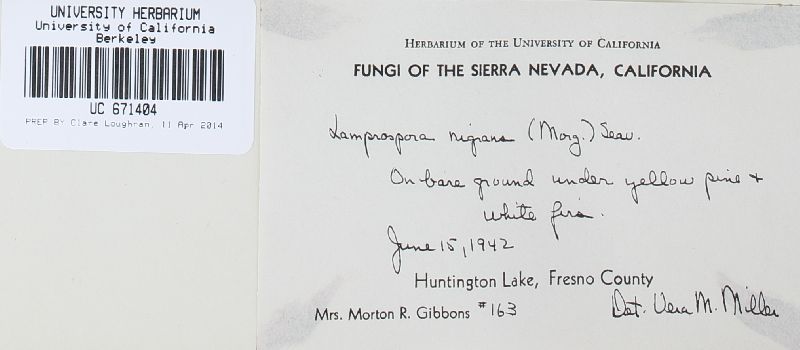 UNIVERSITY HERBARIUM
University of California
Berkeley
UC 671404
PREP BY Clare Loughran, 11 Apr 2014
HERBARIUM OF THE UNIVERSITY OF CALIFORNIA
FUNGI OF THE SIERRA NEVADA, CALIFORNIA
Lamprospora nigrans (Morg.) Seav.
On bare ground under yellow pine +
white firs.
June 15, 1942
Huntington Lake, Fresno County
Mrs. Morton R. Gibbons #163
Det. Vera M. Miller